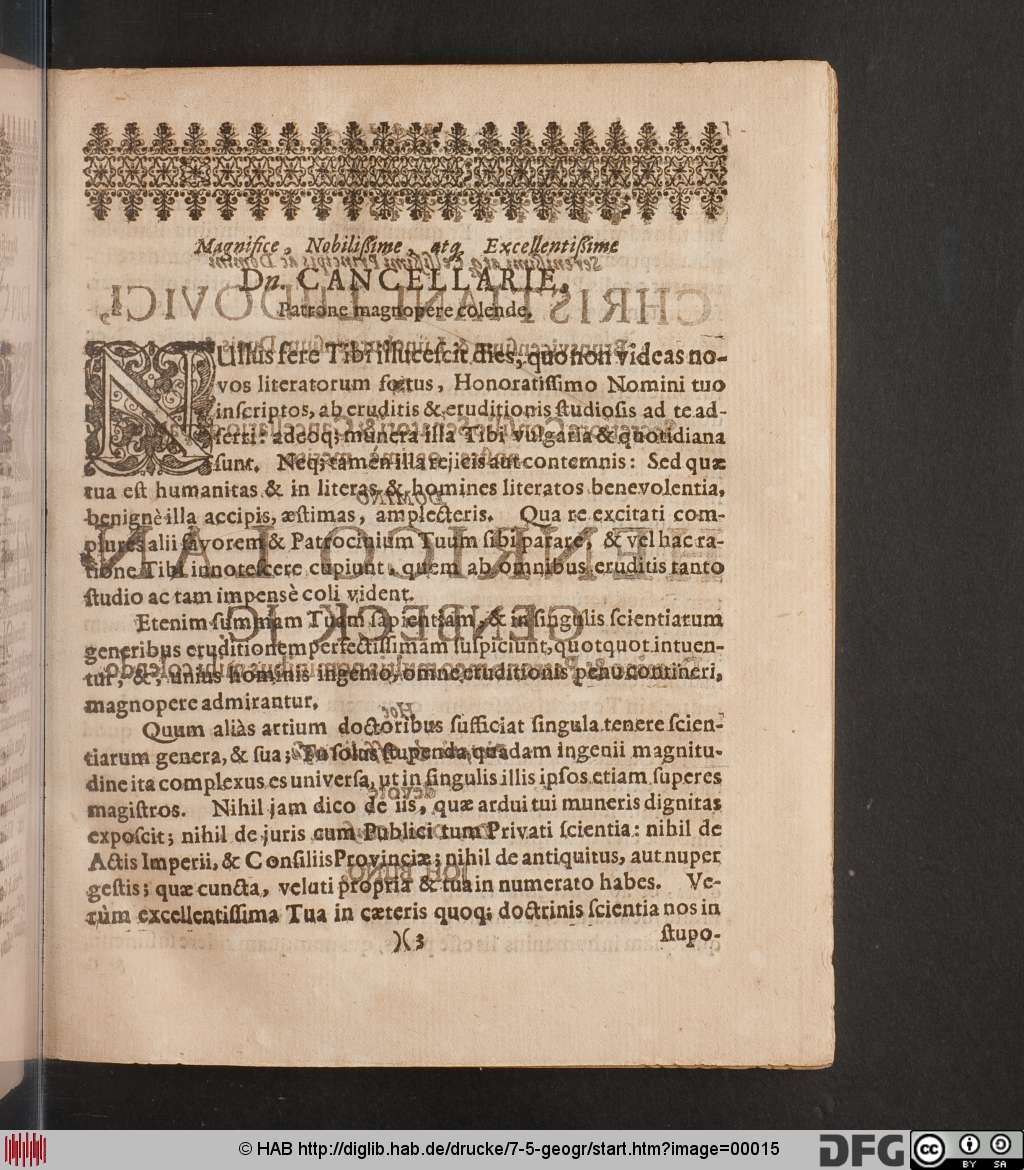 Magnifice, Nobilißime, atq́; Excellentißime
Dn. CANCELLARIE,
Patrone magnopere colende,
NUllus ferè Tibi illucescit dies, quo non videas no-
vos literatorum fœtus, Honoratissimo Nomini tuo
inscriptos, ab eruditis & eruditionis studiosis ad te ad-
ferri: adeoq; munera illa Tibi vulgaria & quotidiana
sunt. Neq; tamen illa rejicis aut contemnis: Sed quæ
tua est humanitas & in literas & homines literatos benevolentia,
benignè illa accipis, æstimas, amplecteris. Qua re excitati com-
plures alii favorem & Patrocinium Tuum sibi parare, & vel hac ra-
tione Tibi innotescere cupiunt, quem ab omnibus eruditis tanto
studio ac tam impensè coli vident.
Etenim summam Tuam sapientiam, & in singulis scientiarum
generibus eruditionem perfectissimam suspiciunt, quotquot intuen-
tur, &, unius hominis ingenio, omne eruditionis penu contineri,
magnopere admirantur.
Quum aliàs artium doctoribus sufficiat singula tenere scien-
tiarum genera, & sua; Tu solus stupenda quadam ingenii magnitu-
dine ita complexus es universa, ut in singulis illis ipsos etiam superes
magistros. Nihil jam dico de iis, quæ ardui tui muneris dignitas
exposcit; nihil de juris cum Publici tum Privati scientia: nihil de
Actis Imperii, & Consiliis Provinciæ; nihil de antiquitus, aut nuper
gestis; quæ cuncta, veluti propria & tua in numerato habes. Ve-
rùm excellentissima Tua in cæteris quoq; doctrinis scientia nos in
)( 3 stupo-
© HAB http://diglib.hab.de/drucke/7-5-geogr/start.htm?image=00015
DFG
cc BY SA